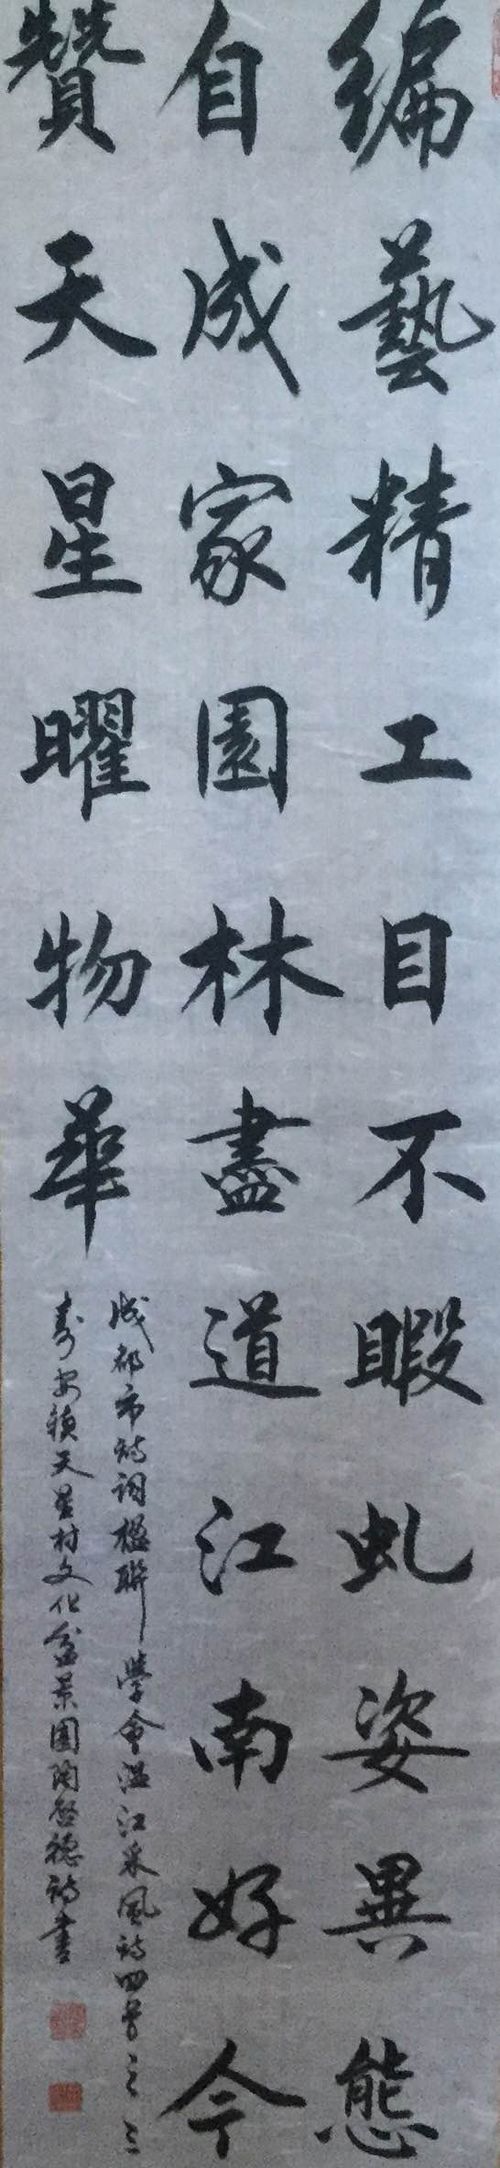 編藝精工目不暇虬姿異態
自成家園林盡道江南好今
贊天星曜物華
成都市詩詞楹聯學會溫江采風詩四首之三
壽安鎮天星村文化盆景園陶啓德詩書